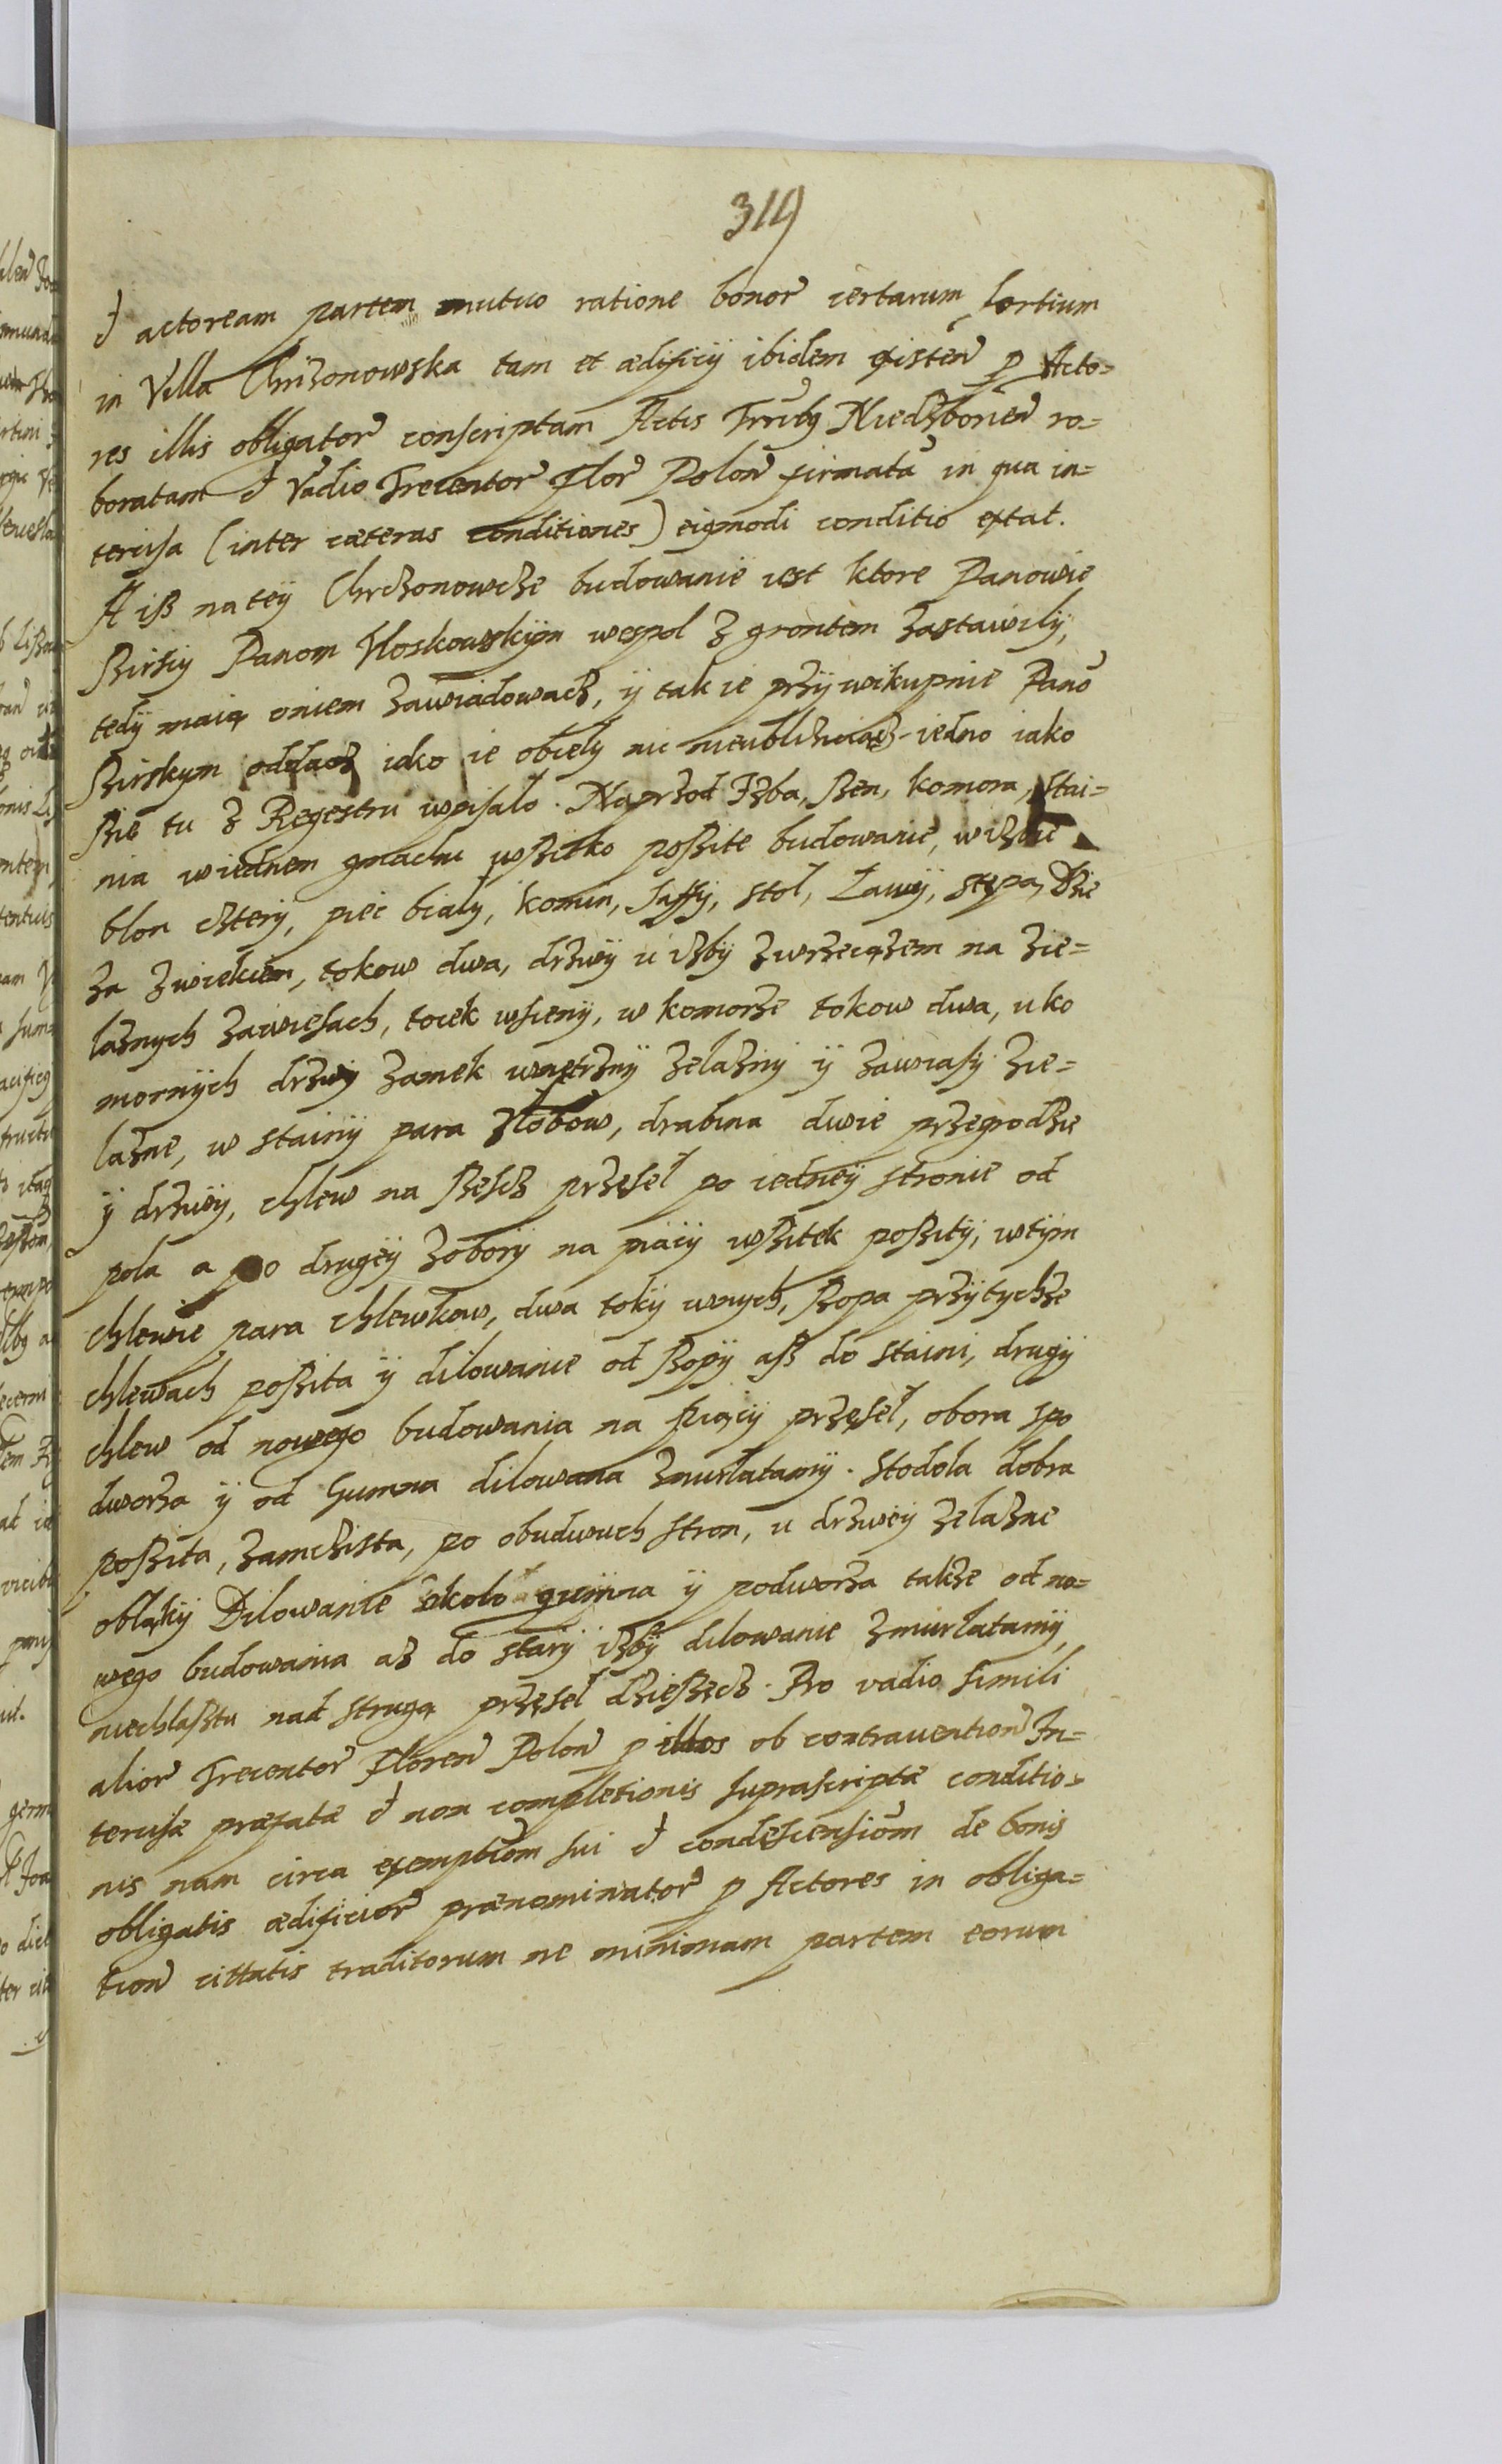 319
et actoream partem mutuo ratione bonor certarum sortium
in Villa Chrczonowska tam et ædificij ibidem existeñ p Acto=
res illis obligator conscriptam Actis Trrũlg Niedzborieñ ro=
boratam et Vadio Trecentor Flor Polon firmatã in qua in=
tercisa (inter cæteras conditiones) eigmodi conditio extat.
A isz na teÿ Chrczonowcze budowanie iest ktore Panowie
Birsiÿ Panom Kloskowskÿm wespol z grontem zastawilÿ,
tedÿ maią oniem zawiadowacz, ÿ tak ie przÿ wikupnie Panõ
Birskym oddacz iako ie obielÿ nic nieublizaiącz iedno iako
szie tu z Regestru wpisalo. Naprzod Izba, szen, komora, stai=
nia w iednem gmachu wszitko poszite budowanie, w izbie
blon czterÿ, piec bialÿ, komin, suffÿ, stol, Lawÿ, stępa, dzie
za zwiekiem, tokow dwa, drzwÿ u izbÿ zwrzeciązem na zie=
laznych zawiesach, tocek wsienÿ, w komorze tokow dwa, u ko
mornÿch drzwÿ zamek wnętrznÿ zelaznÿ ÿ zawiasÿ zie=
lazne, w stainÿ para złobow, drabina dwie przegrodzie
ÿ drzwÿ, chlew na szescz przęseł po iedneÿ stronie od
pola a po drugeÿ zoborÿ na piącÿ wszitek poszitÿ, wtÿm
chlewie para chlewkow, dwa tokÿ unych, szopa przÿtychze
chlewach poszita ÿ dilowanie od szopÿ asz do staini, drugÿ
chlew od nowego budowania na piącÿ przęseł, obora spo
dworza ÿ od Gumna dilowana zmurlatamÿ. Stodola dobra
poszita, zamczista, po obudwuch stron, u drzweÿ zelazne
obląkÿ Dilowanie około gumna ÿ podworza takze od no=
wego budowania az do starÿ izbÿ dilowanie zmurlatamÿ,
nad strugą przęseł dziesięcz. Pro vadio simili
alior Trecentor Floren Polon p illos ob contrauention In=
tercisæ præfatæ et non completionis suprascriptæ conditio=
nis nam circa exemptiom sui et condescensiom de bonis
obligatis ædificior prænominator p Actores in obliga=
tion cittatis traditorum ne minimam partem eorum